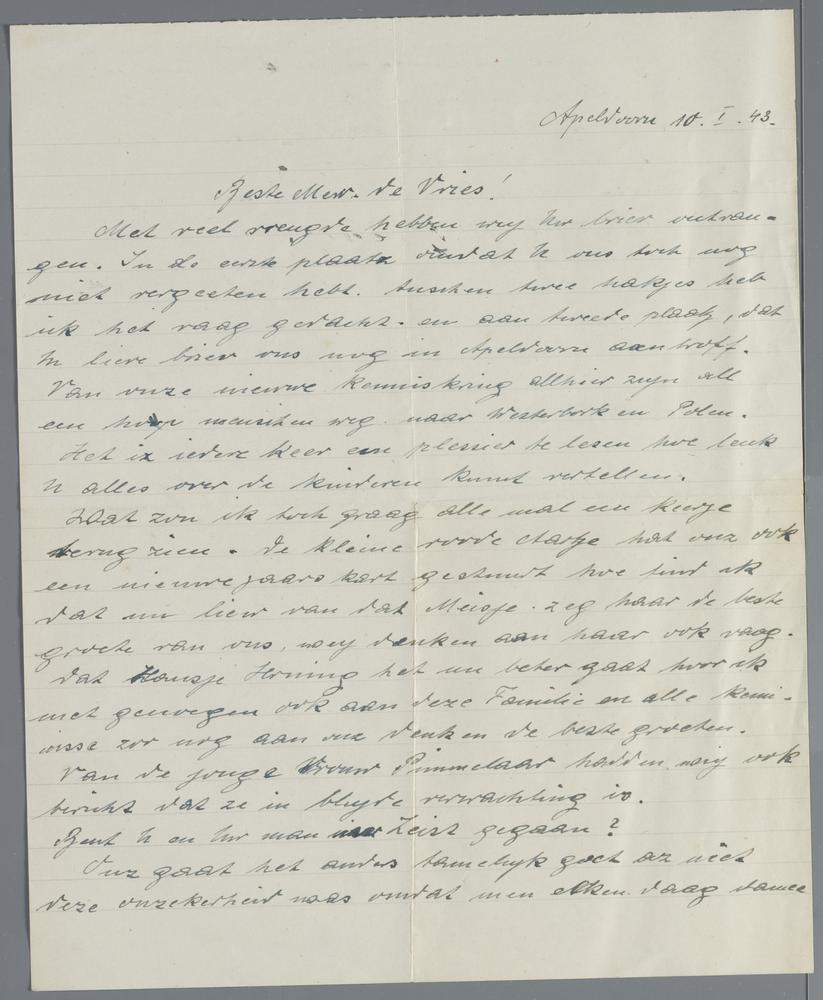 Apeldoorn 10. I. 43.
Beste Mew. de Vries!
Met veel vreugde hebben wey Uw brier ontvan-
gen. In de eerste plaats omdat U ons toch nog
niet vergesten hebt. tuschen twee hakjes heb
ik het vaag gedacht. en aan tweede plaatz, dat
Uw lieve brier ons nog in Apeldoorn aantroff.
Van onze nieuwe kenniskring allhier zeyn all
een hoop menschen weg. naar Westerbork en Polen.
Het is iedere keer een plessier te lesen hoe leuk
U alles over de kinderen kunt vertellen.
Wat zou ik toch graag alle mal een keerje
terug zien. de kleine roode hat onz ook
een nieuwejaars kart gestuurdt hoe find ik
dat nu liew van dat Meisje. zeg haar de beste
groete van ons, wey denken aan haar ook vaag.
dat Hansje Honing het nu beter gaat hoor ik
met genoegen ook aan deze Familie en alle kenn-
issa zoo nog aan onz denken de beste groeten.
Van de jonge Vrouw Pimmelaar hadden wey ook
bericht dat ze in bleyde verwachting is.
Bent U en Uw man Zeist gegaan?
Onz gaat het anders tamelyk goet az niet
deze onzekerheid waas omdat men elken daag damee